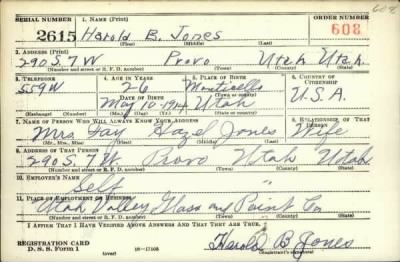 608
SERIAL NUMBER 1. NAME (Print) ORDER NUMBER
2615 Harold B. Jones 608
(First) (Middle) (Last)
2. ADDRESS (Print)
290 S. 7 W Provo Utah Utah.
(Number and street or R. F. D. number) (Town) (County) (State)
3. TELEPHONE 4. AGE IN YEARS 5. PLACE OF BIRTH 6. COUNTRY OF CITIZENSHIP
559W 26 Monticello
DATE OF BIRTH (Town or county)
May 10-1914 Utah U.S.A.
(Exchange) (Number) (Mo.) (Day) (Yr.) (State or country)
7. NAME OF PERSON WHO WILL ALWAYS KNOW YOUR ADDRESS 8. RELATIONSHIP OF THAT PERSON
Mrs. Fay Hazel Jones Wife
(Mr., Mrs., Miss) (First) (Middle) (Last)
9. ADDRESS OF THAT PERSON
290 S. 7 W. Provo Utah Utah
(Number and street or R. F. D. number) (Town) (County) (State)
10. EMPLOYER'S NAME
Self
11. PLACE OF EMPLOYMENT OR BUSINESS
Utah Valley Glass and Paint Co
(Number and street or R. F. D. number) (Town) (County) (State)
I AFFIRM THAT I HAVE VERIFIED ABOVE ANSWERS AND THAT THEY ARE TRUE.
REGISTRATION CARD
D. S. S. FORM 1 (over) 16-17105 Harold B Jones
(Registrant's signature)